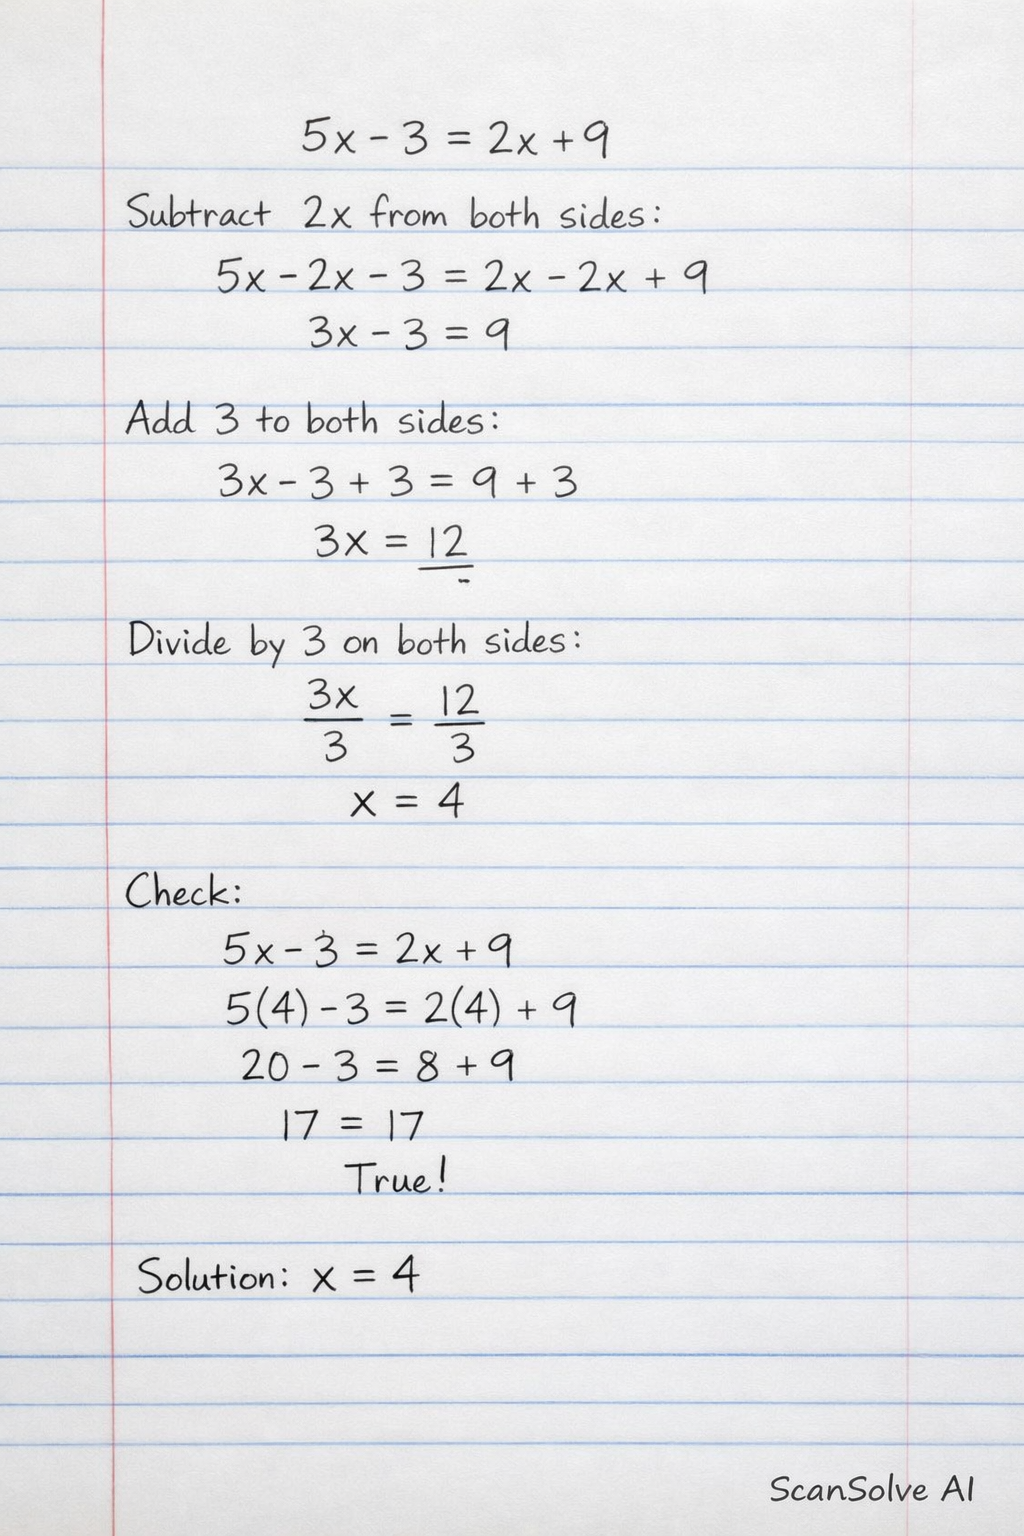 5x - 3 = 2x + 9
Subtract 2x from both sides:
5x - 2x - 3 = 2x - 2x + 9
3x - 3 = 9
Add 3 to both sides:
3x - 3 + 3 = 9 + 3
3x = 12
Divide by 3 on both sides:
3x/3 = 12/3
x = 4
Check:
5x - 3 = 2x + 9
5(4) - 3 = 2(4) + 9
20 - 3 = 8 + 9
17 = 17
True!
Solution: x = 4
ScanSolve AI